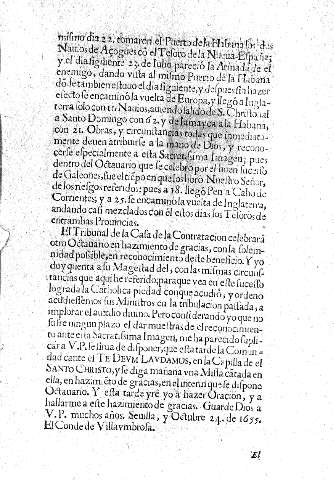 mismo dia 22. tomaron el Puerto de la Habana los dos
Navios de Açogues có el Tesoro de la Nueua-España;
y el dia siguiente 23. de Iulio pareciò la Armada del
enemigo, dando vista al mismo Puerto de la Habana
dóde tambien estuuo el dia siguiente, y despues sin hazer
efecto se encaminò la vuelta de Europa, y llegò a Ingla-
terra solo con Nauios, auiendo salido de S. Christoual
a Santo Domingo con 62. y de Iamayca a la Habana,
con 21. Obras, y circunstancias todas que inmediata-
mente deuen atribuirse a la mano de Dios, y recono-
cerse especialmente a esta Sacratissima Imagen; pues
dentro del Octauario que se celebrò por el buen sucesso
de Galeones, fue el tiépo en que los librò Nuestro Señor,
de los riesgos referidos: pues a 18. llegò Pen a Cabo de
Corrientes, y a 25. se encaminò la vuelta de Inglaterra,
andando casi mezclados con el estos dias los Tesoros de
entrambas Prouincias.
El Tribunal de la Casa de la Contratacion celebrarà
otro Octauario en hazimiento de gracias, con la solem-
nidad possible, en reconocimiento deste beneficio. Y yo
doy quenta a su Magestad del, con las mismas circuns-
tancias que aqui he referido, para que vea en este sucesso
lograda la Catholica piedad con que acudiò, y ordenò
acudiessemos sus Ministros en la tribulacion passada, a
implorar el auxilio diuino. Pero considerando yo que no
sufre ningun plazo el dar muestras de el reconocimien-
to ante esta Sacratissima Imagen, me ha parecido supli-
car a V.P. se sirua de disponer, que esta tarde la Comuni-
dad cante el TE DEVM LAVDAMVS, en la Capilla de el
SANTO CHRISTO, y se diga mañana vna Missa cátada en
ella, en hazimiéto de gracias, en el interin que se dispone
a Octauario. Y esta tarde yrè yo a hazer Oracion, y a
hallarme a este hazimiento de gracias. Guarde Dios a
V.P. muchos años. Seuilla, y Octubre 24. de 1655.
El Conde de Villaumbrosa.
El